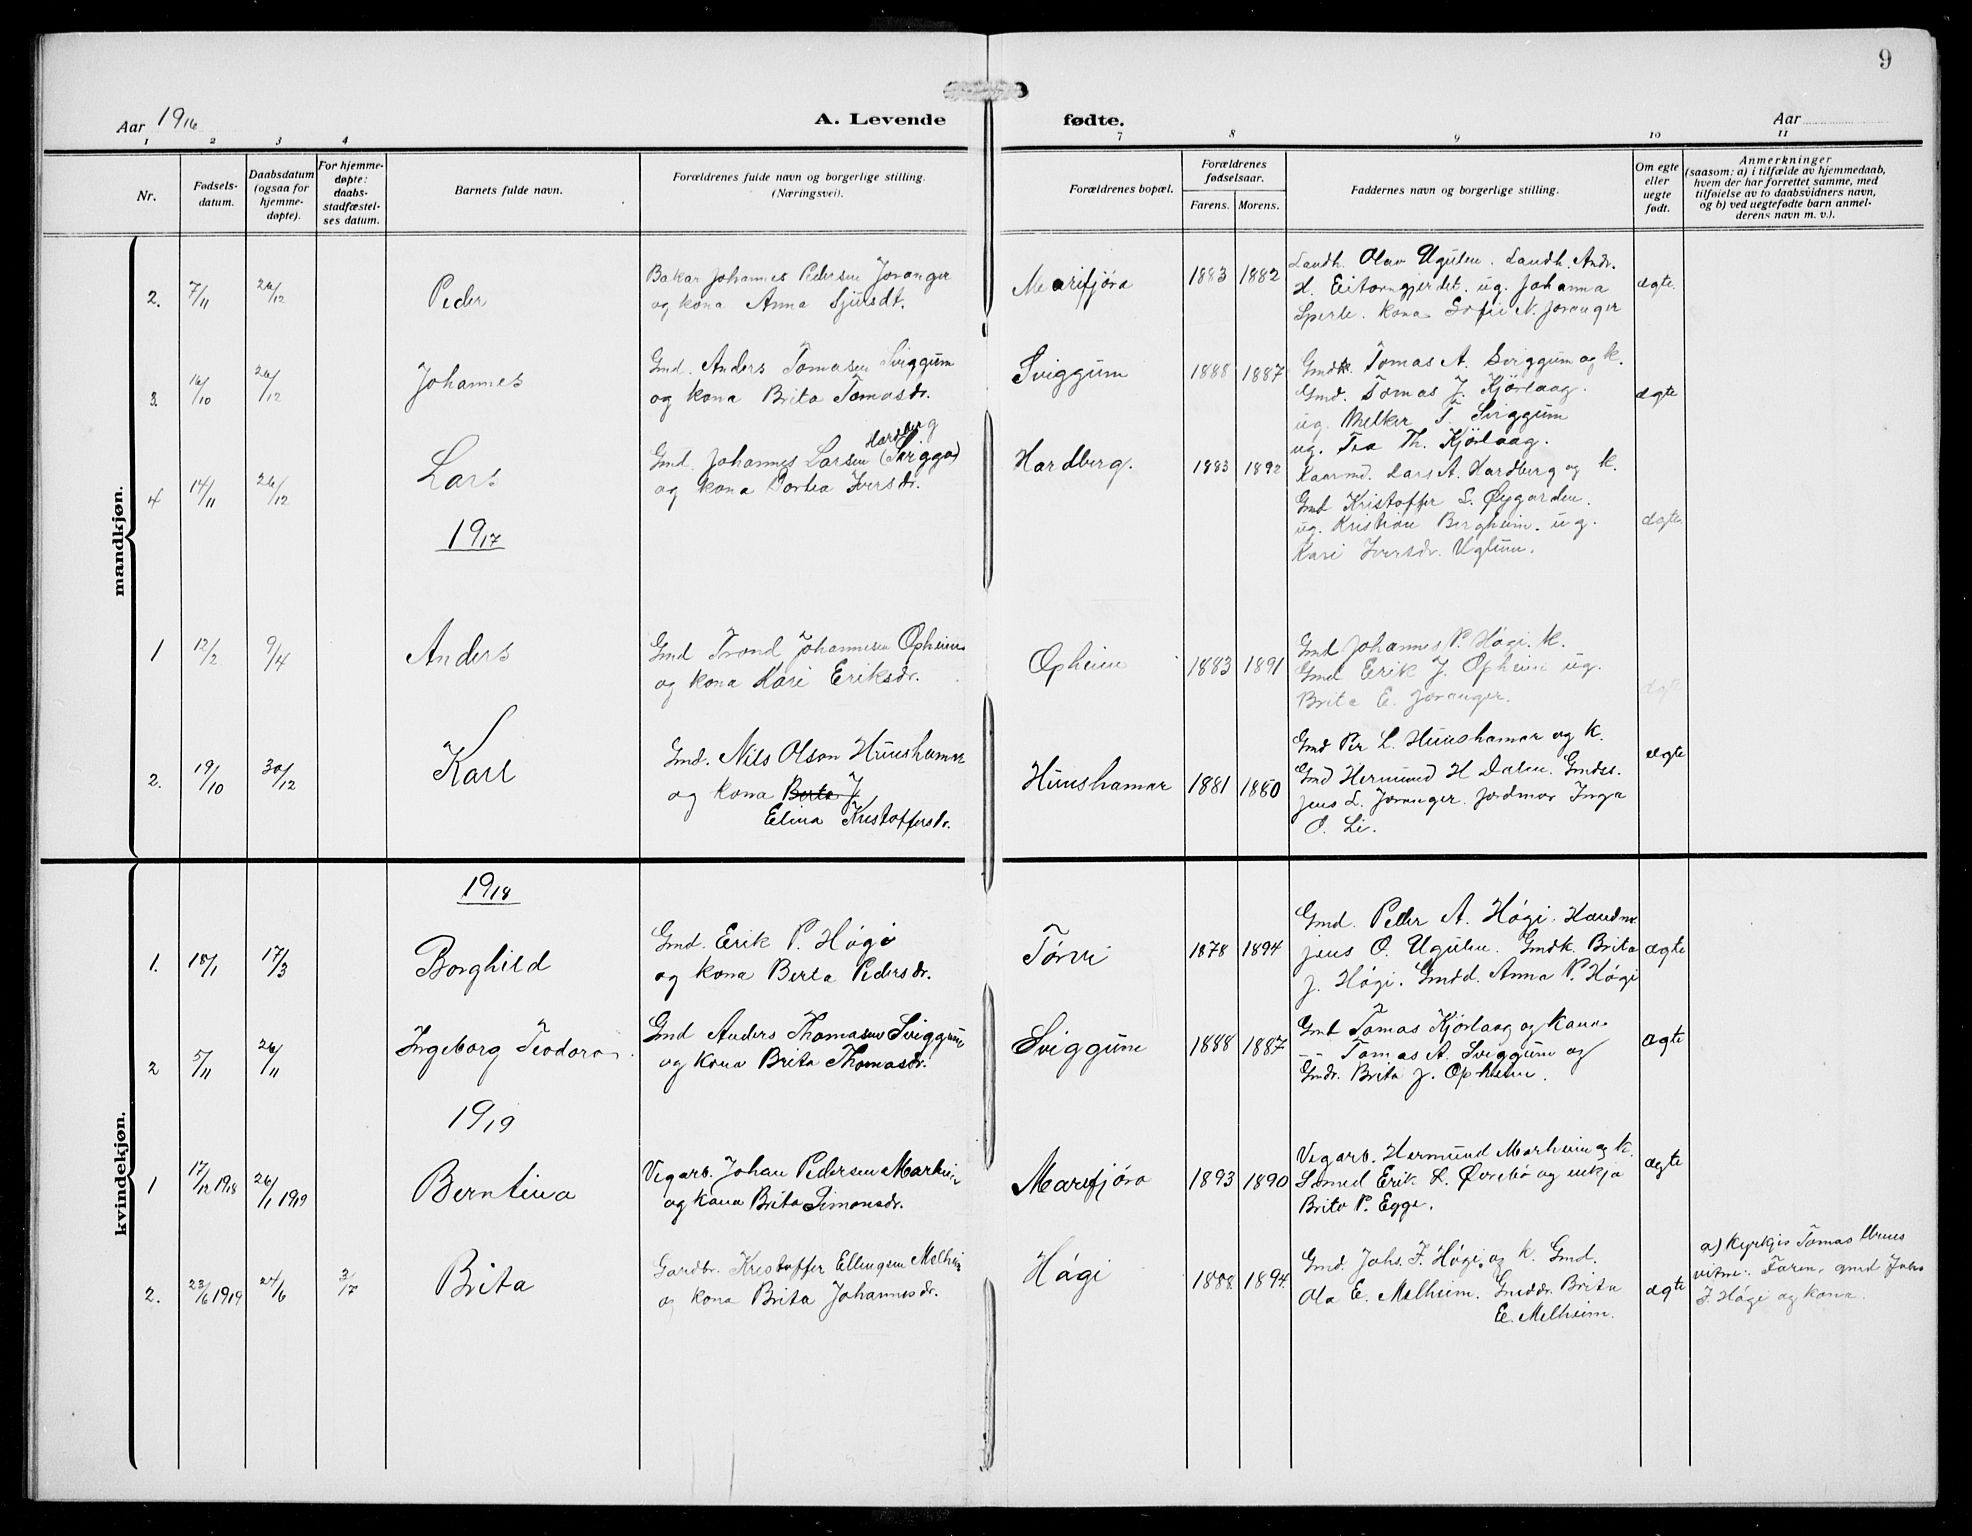 9
Aar 1916
A. Levende fødte.
Aar
1 2 3 4 7 8 9 10 11
Nr.
Fødsels-
datum.
Daabsdatum
(ogsaa for
hjemme-
døpte).
For hjemme-
døpte:
daabs-
stadfæstel-
ses datum.
Barnets fulde navn.
Forældrenes fulde navn og borgerlige stilling.
(Næringsvei).
Forældrenes bopæl.
Forældrenes
fødselsaar.
Farens. Morens.
Faddernes navn og borgerlige stilling.
Om egte
eller
uegte
født.
Anmerkninger
(saasom: a) i tilfælde av hjemmedaab,
hvem der har forrettet samme, med
tilføielse av to daabsvidners navn,
og b) ved uegtefødte barn anmel-
derens navn m. v.).
mandkjøn.
2. 7/11 26/12 Peder
Bakar Johannes Pedersen Joranger
og kona Anna Sjursdt.
Marifjøra 1883 1882
Landh. Olav Ugulen. Landh. Andr.
H. Eitorngjerdet. ug. Johanna
Sperle. kona Sofie N. Joranger
ægte.
3. 16/10 26/12 Johannes
Gmd. Anders Tomasen Sviggum
og kona Brita Tomasdr.
Sviggum 1888 1887
Gmdk. Tomas A. Sviggum og k.
Gmd. Tomas J. Kjørlaug.
ug. Melker T. Sviggum
ug. Tea Th. Kjørlaug.
ægte
4 14/11 26/12 Lars
Hardberg
Gmd. Johannes Larsen
og kona Dortea Iversdr.
Hardberg. 1883 1892
Kaarmd. Lars A. Hardberg og k.
Gmd Kristoffer L. Øygarden.
ug. Kristian Bergheim. ug.
Kari Iversdr. Ugulen.
ægte.
1917
1 12/2 9/4 Anders
Gmd Trond Johannesen Opheim
og kona Kari Eriksdr.
Opheim 1883 1891
Gmd Johannes P. Høgi. k.
Gmd Erik J. Opheim ug.
Brita E. Joranger.
ægte
2. 19/10 30/12 Karl
Gmd. Nils Olson Hunshamar
og kona Berta J
Elina Kristoffersdr.
Hunshamar 1881 1880
Gmd Per L. Hunshamar og k.
Gmd Hermund H Dalen. Gmdss.
Jens L. Joranger. Jordmor Inga
O. Li.
ægte
kvindekjøn.
1918
1. 18/1 17/3 Borghild
Gmd. Erik P. Høgi
og kona Berta Pedersdr.
Tørvi 1878 1894
Gmd. Peder A. Høgi. Handm.
Jens O. Ugulen. Gmdk. Brita
J. Høgi. Gmdd. Anna P. Høgi
ægte
2 5/11 26/11 Ingeborg Teodora
Gmd Anders Thomasen Sviggum
og kona Brita Thomasdr.
Sviggum 1888 1887
Gmd Tomas Kjørlaug og kona
— Tomas A. Sviggum og
Gmdr. Brita J. Opheim.
ægte
1919
1 17/12 1918 26/1 1919 Berntina
Vegarb. Johan Pedersen Marheim
og kona Brita Simonsdr.
Marifjøra 1893 1890
Vegarb. Hermund Marheim og k.
Smed Erik L. Øvrebø og enkja
Brita P. Egge.
ægte
2. 23/6 1919 24/6 3/7 Brita
Gardbr. Kristoffer Ellingsen Melheim
og kona Brita Johannesdr.
Høgi 1888 1894.
Gmd. Johs. F. Høgi og k. Gmd.
Ola E. Melheim. Gmddr. Brita
E. Melheim.
ægte
a) Kyrkjes Tomas
vitne: Faren, gmd Johs
F. Høgi og kona.